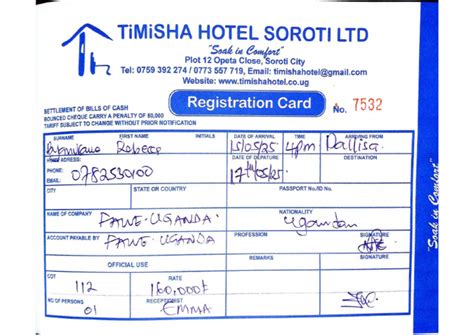 TiMiSHA HOTEL SOROTI LTD
"Soak in Comfort"
Plot 12 Opeta Close, Soroti City
Tel: 0759 392 274 / 0773 557 719, Email: timishahotel@gmail.com
Website: www.timishahotel.co.ug
SETTLEMENT OF BILLS OF CASH
BOUNCED CHEQUE CARRY A PENALTY OF 50,000
TARIFF SUBJECT TO CHANGE WITHOUT PRIOR NOTIFICATION
Registration Card No. 7532
SURNAME FIRST NAME INITIALS DATE OF ARRIVAL TIME ARRIVING FROM
Rebecca 15/05/25 4pm Pallisa
HOME ADDRESS: DATE OF DEPARTURE
PHONE: 0782530100 17th/05/25
EMAIL:
CITY STATE OR COUNTRY PASSPORT No./ID No.
NAME OF COMPANY NATIONALITY
FAWE-UGANDA Ugandan
ACCOUNT PAYABLE BY PROFESSION SIGNATURE
FAWE-UGANDA
OFFICIAL USE REMARKS
COT RATE
112 160,000/=
NO OF PERSONS RECEPTIONIST SIGNATURE
01 EMMA
"Soak in Comfort"